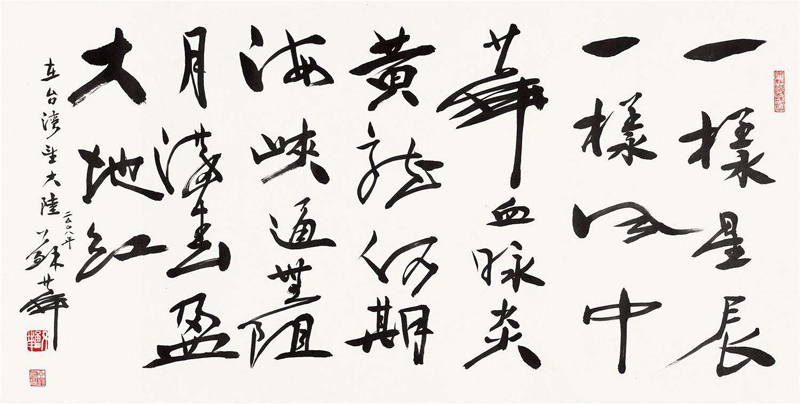 一樣星辰
一樣風中
華血脉炎
黄龍何期
海峽通無阻
月滿春盈
大地紅
在台灣望大陸 二〇〇八年 蘇華